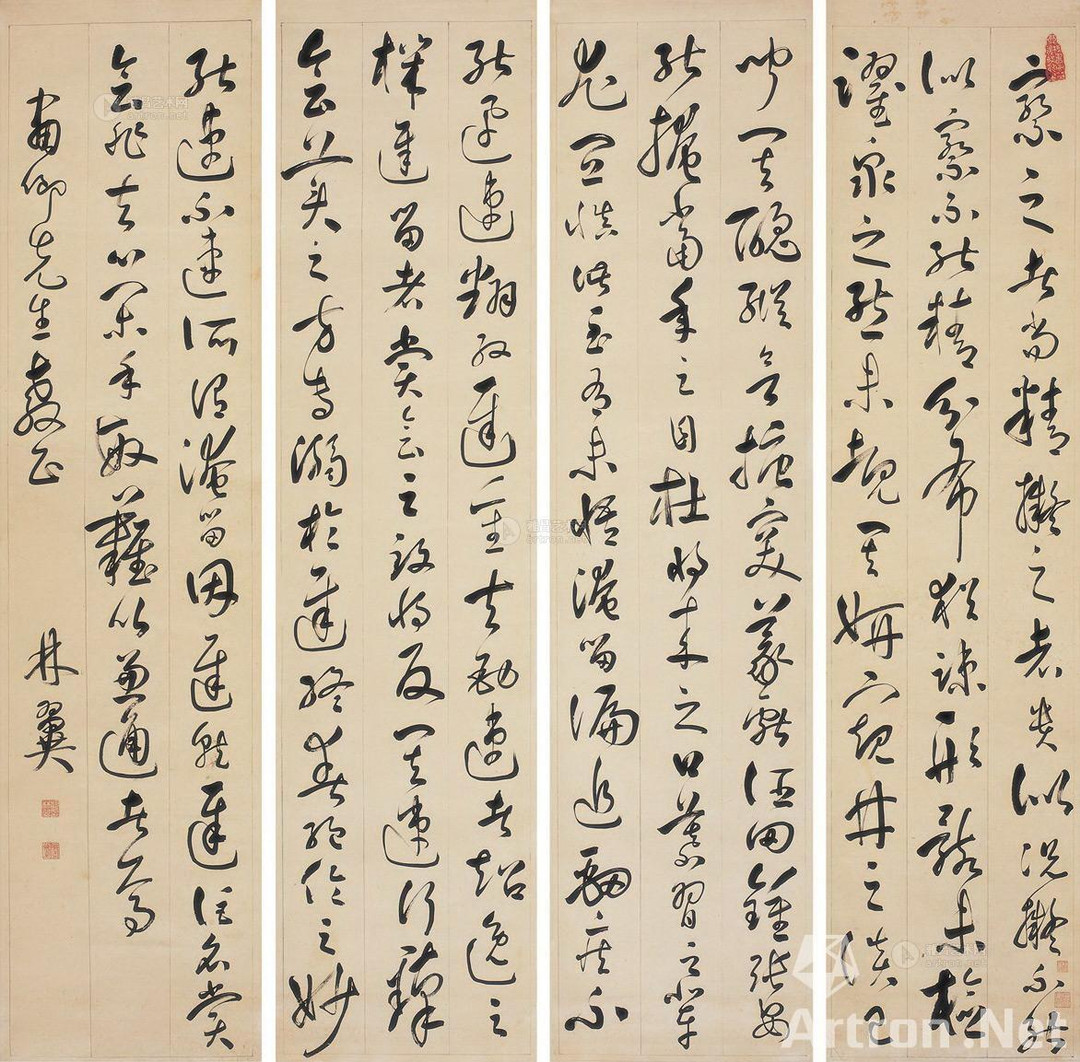 察之者尚精擬之者貴似況擬不能
似察不能精分布猶疏形骸未檢
躍泉之態未覩其妍窺井之談已
聞其醜縱欲搪突羲獻誣罔鍾張安
能掩當年之目杜將來之口慕習之輩
尤宜慎諸至有未悟淹留偏追勁疾不
能迅速翻效遲重夫勁速者超逸之
機遲留者賞會之致將反其速行臻
會美之方專溺於遲終爽絕倫之妙
能速不速所謂淹留因遲就遲詎名賞
會非夫心閑手敏難以兼通者焉
仰先生教正
林翼
Artron.Net